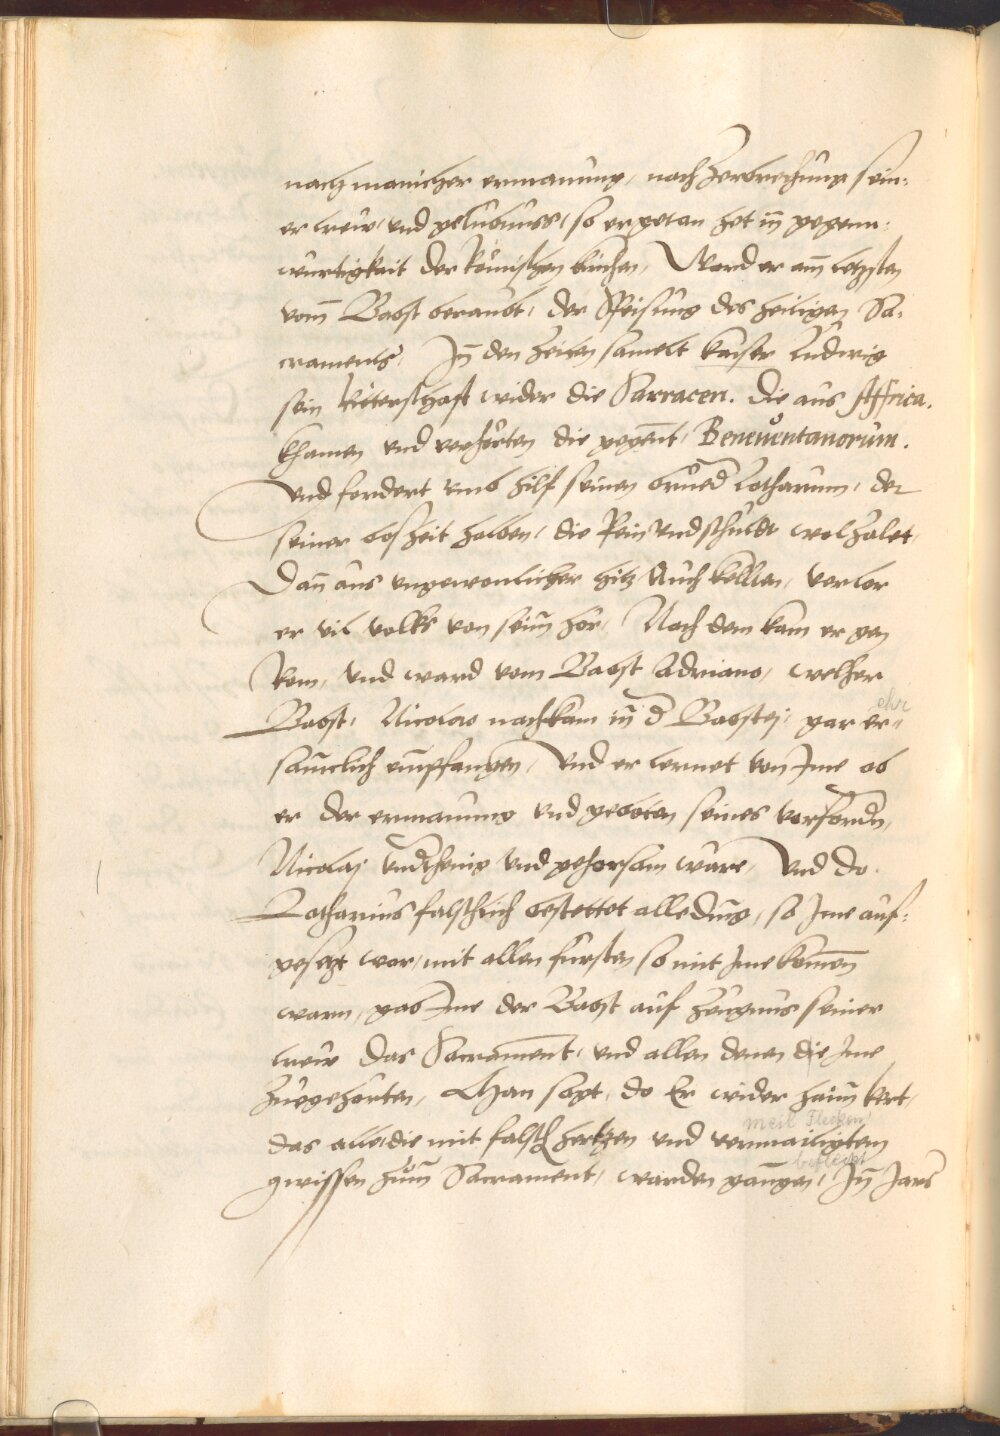 nach manicher ermanung, nach Zerbrechung sein:
er trew, und gelubnuss, so er getan het in gegenn:
wurtigkait der Römischen kirchen, Ward er am letzsten
vom Babst beraubt, der Speisung des heiligen Sa:
craments, In den zeiten samelt kaiser Ludwig
sein Ritterschaft wider die Sarracen. die aus Affrica.
khamen und verhörten die gegent, Beneventanorum.
Und fordert umb hilf seinen brued Lotharium, der
seiner bosheit halben, die Pein und schuldt wol zalet,
Dan aus ungewonlicher hitz Auch kellten, verlor
er vil volks von seim hör, Nach dem kam er gen
Rom, und ward vom Babst Adriano, welher
Babst, Nicolao nachkam in d Babstej, gar er=
ehr
samclich empfangen, Und er lernet von Jme ob
er der ermanung und geboten seines vorfordn,
Nicolaj undthenig und gehorsam wäre, Und do
Lotharius falschlich bestettet alle ding, so Jme auf:
gesetzt war, mit allen fürsten so mit Jme komen
warn, gab Jme der Babst auf zeugnus seiner
trew das Sacrament, und allen denen die Jme
zuegehorten, Man sagt, do Er wider haim kert,
meil Flecken
das alle, die mit falsch hertzen und vermailigtem
befleckt
gwissen zum Sacrament, warden gangen, In Jars